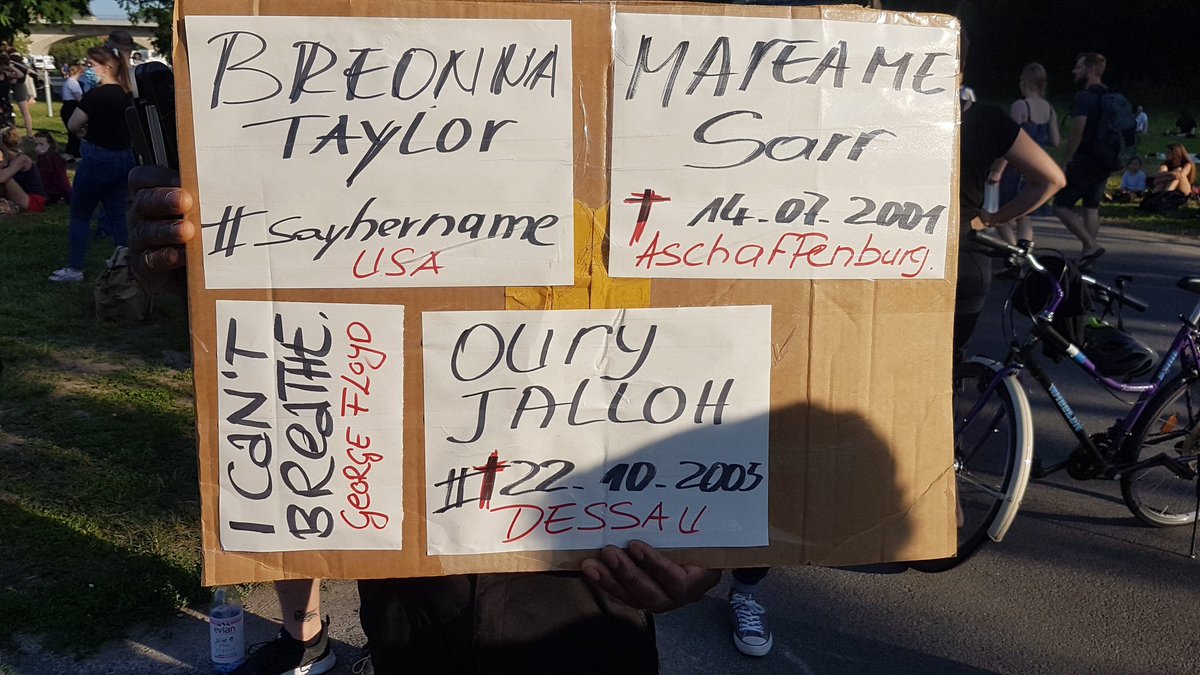 BREONNA
TAYLOR
#Sayhername
USA
MAREAME
Sarr
† 14-07-2001
Aschaffenburg.
I CAN'T
BREATHE.
GEORGE FLOYD
OURY
JALLOH
#†22-10-2005
DESSAU
evian